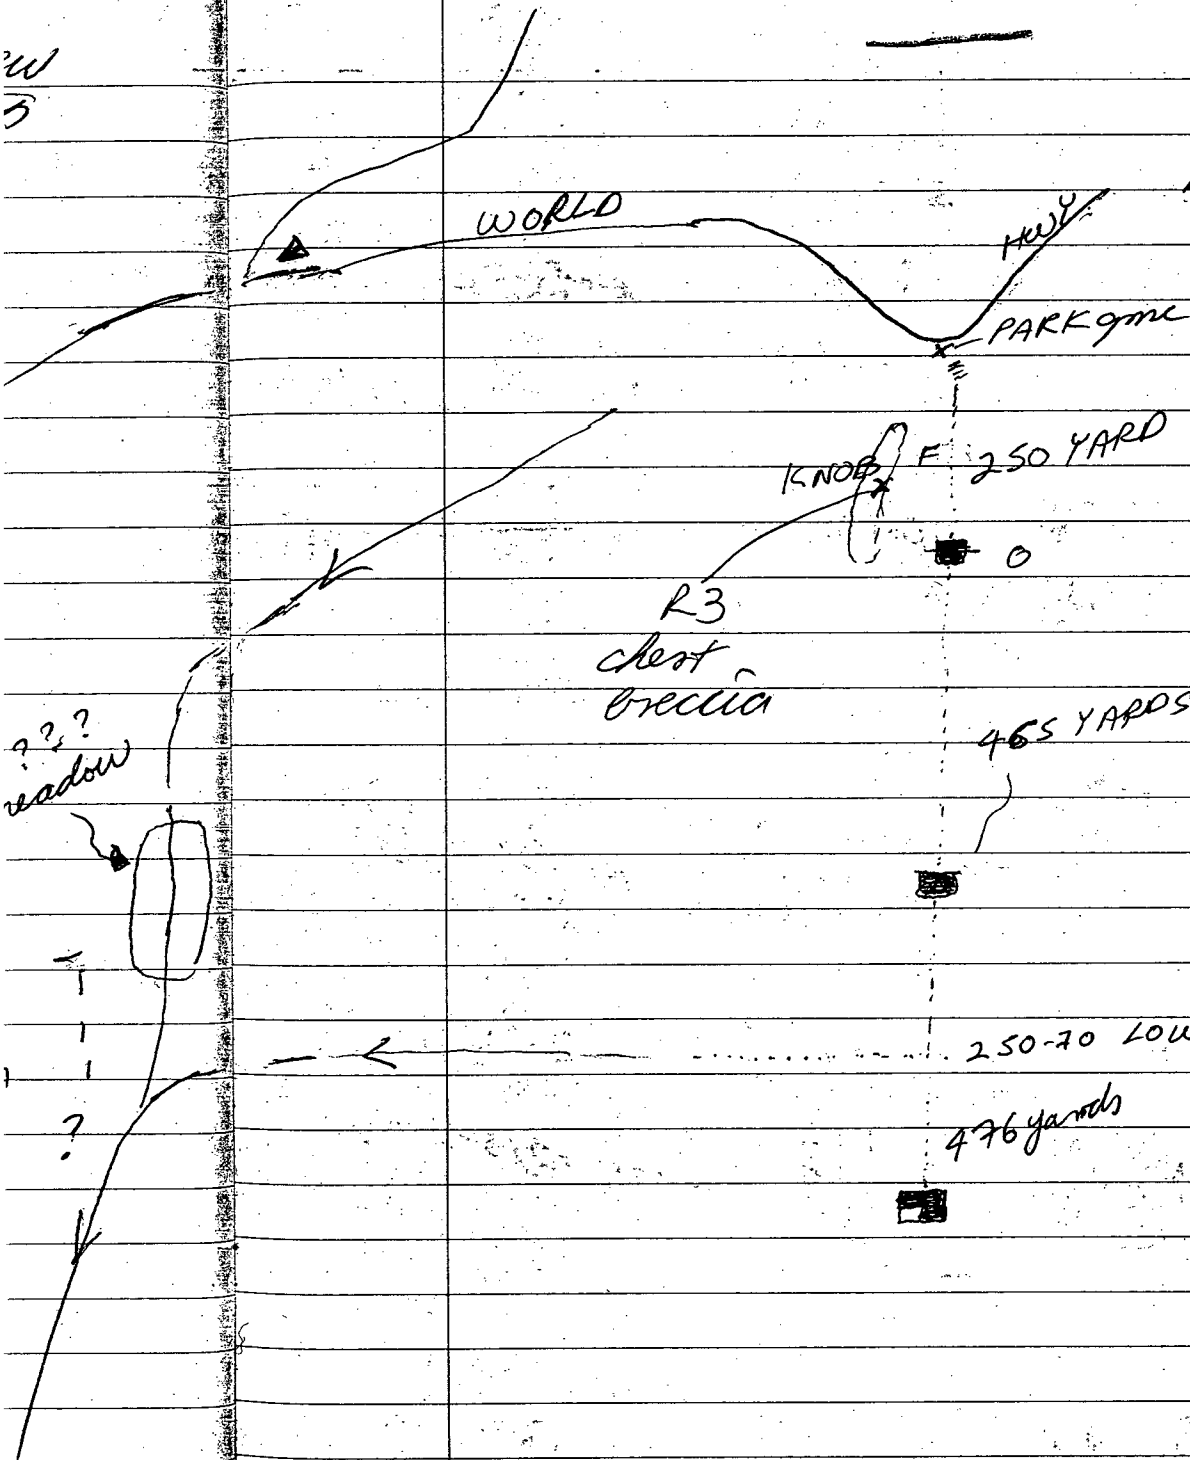 WORLD
HWY
PARK gmc
KNOB F 250 YARD
0
R3
chert
breccia
465 YARDS
? ? ?
meadow
250-70 LOW
476 yards
?